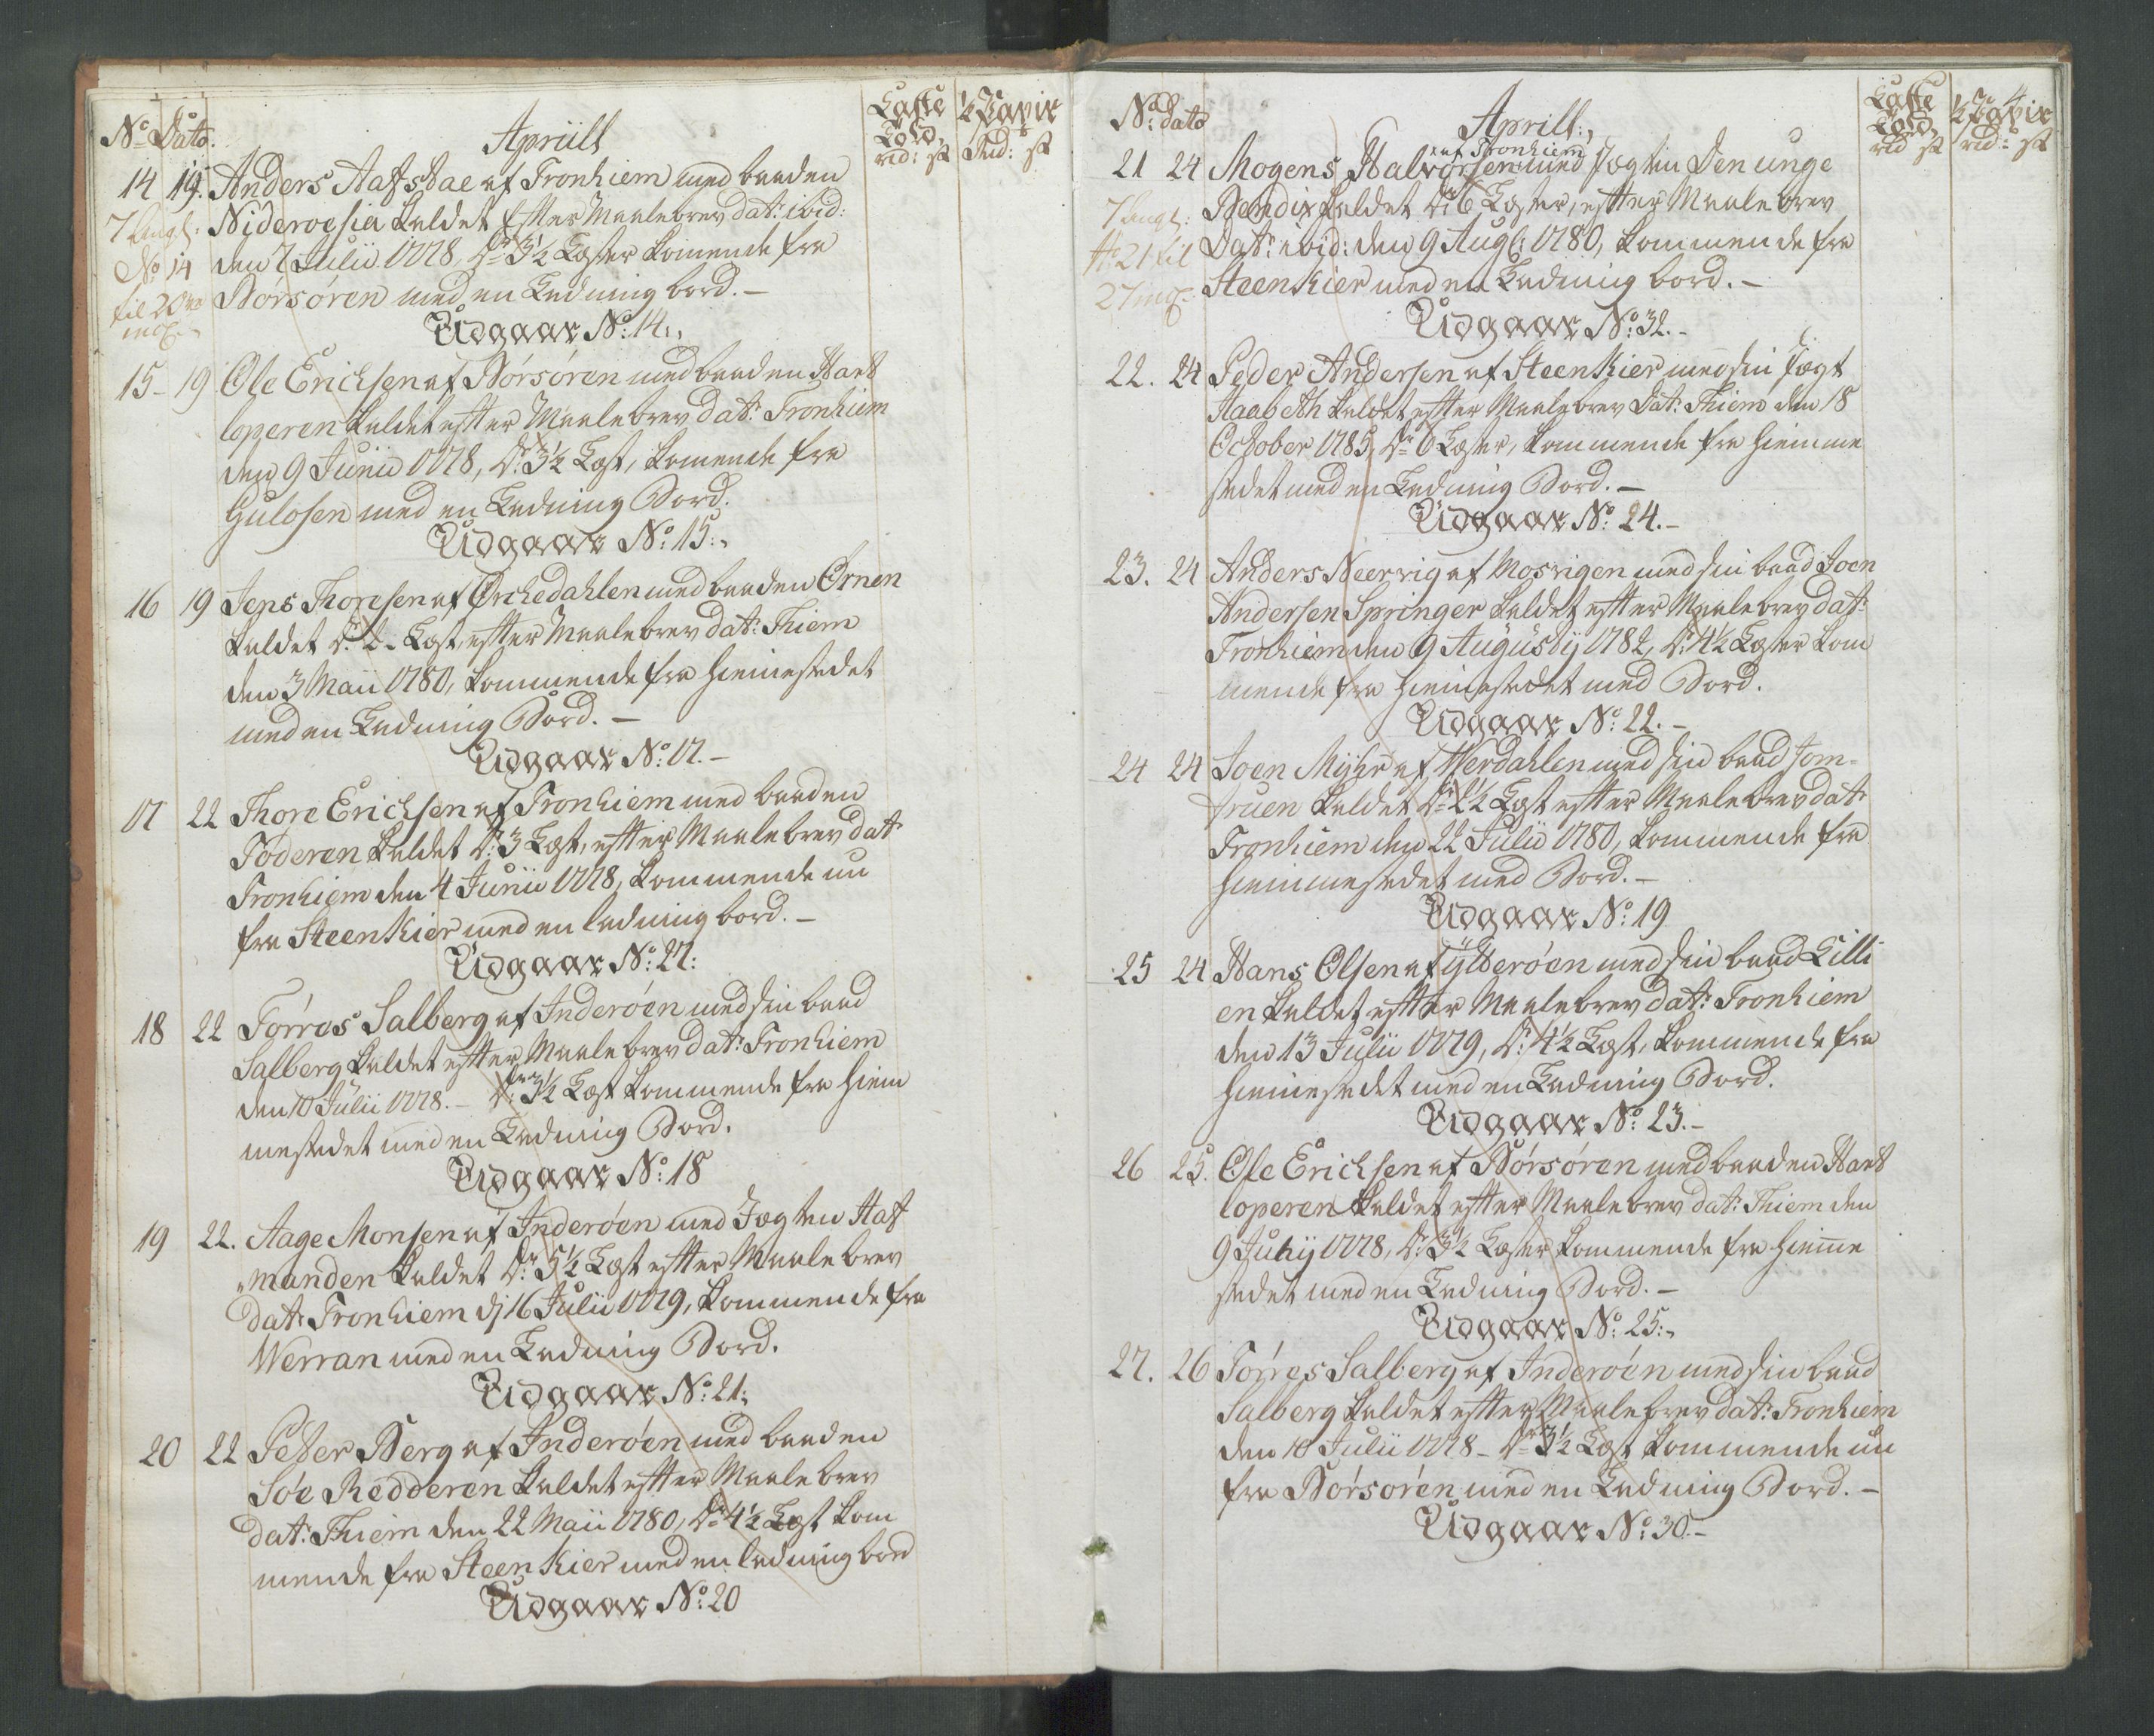 No Dato.
Apriill
Laste Told, rd: s
½ Papir Rd: s
14 19. Anders Hafstae af Tronhiem med baaden
7 Angl: No 14 til 20 incl.
Niderosia kaldet efter Maalebrev dat: ibid:
den 7 Julii 1778 Dr: 3½ Læster komende fra
Börsören med en Ladning bord. -
Udgaar No: 14:,
15 - 19 Ole Erichsen af Börsören med baaden Hart
loperen kaldet efter Maalebrev dat: Tronhiem
den 9 Junii 1778, Dr: 3½ Læst, komende fra
Gulosen med en Ladning Bord.
Udgaar No: 15:,
16 19 Jens Thoresen af Orchedahlen med baaden Ørnen
kaldet Dr: 2 - Læst, efter Maalebrev dat: Thiem
den 3 Maii 1780, kommende fra hiemestedet
med en Ladning Bord. -
Udgaar No: 17. -
17 22 Thore Erichsen af Tronhiem med baaden
Foderen kaldet Dr: 3 Læst, efter Maalebrev dat:
Tronhiem den 4 Junii 1778, kommende nu
fra SteenKier med en ladning bord. -
Udgaar No: 27:
18 22 Törros Salberg af Inderöen med sin baad
Salberg kaldet efter Maalebrev dat: Tronhiem
den 10 Julii 1778. - Dr: 3½ Læst kommende fra hiem
mestedet med en Ladning Bord.
Udgaar No: 18
19 22. Aage Monsen af Inderöen med Jægten Haf
manden kaldet Dr: 5½ Læst efter Maalebrev
dat: Tronhiem dj 16 Julii 1779, kommende fra
Werran med en Ladning Bord.
Udgaar No: 21:
20 22 Peter Berg af Inderöen med baaden
Söe Redderen kaldet efter Maalebrev
dat: Thiem den 22 Maii 1780, Dr: 4½ Læst kom
mende fra SteenKier med en ladning bord
Udgaar No: 20
4
No: dato
Aprill:,
Laste Told, rd s
½ Papir rd: s
af Tronhiem
21 24 Mogens Halvorsen med Jægten Den unge
7 Angl: No 21 til 27 incl.
Bendix kaldet Dr: 6 Læster, efter Maalebrev
Dat: ibid: den 9 Aug: 1780, kommende fra
SteenKier med en Ladning bord. -
Udgaar No: 32. -
22. 24 Peder Andersen af SteenKier med sin Jægt
Haabeth kaldet efter Maalebrev Dat: Thiem den 18
October 1785, Dr: 6 Læster, kommende fra hiemme
stedet med en Ladning Bord. -
Udgaar No: 24. -
23. 24 Anders Neervig af Mosvigen med sin baad Joen
Andersen Springer kaldet efter Maalebrev dat:
Tronhiem den 9 Augustij 1782, Dr: 4½ Læster kom
mende fra hiemestedet med Bord.
Udgaar No: 22. -
24 24 Joen Myhr af Werdahlen med sin baad Jom-
fruen kaldet Dr: 2½ Læst efter Maalebrev dat:
Tronhiem den 22 Julii 1780, kommende fra
hiemmestedet med Bord. -
Udgaar No: 19
25 24 Hans Olsen af Ytteröen med sin baad Lilli
en kaldet efter Maalebrev dat: Tronhiem
den 13 Julii 1779, Dr: 4½ Læst, kommende fra
hiemestedet med en Ladning Bord.
Udgaar No: 23. -
26 25. Ole Erichsen af Börsören med baaden Hart
loperen kaldet efter Maalebrev dat: Thiem den
9 Julij 1778, Dr: 3½ Læster kommende fra hieme
stedet med en Ladning Bord. -
Udgaar No: 25:,
27. 26 Törres Salberg af Inderöen med sin baad
Salberg kaldet efter Maalebrev dat: Tronhiem
den 10 Julii 1778 - Dr: 3½ Læst kommende nu
fra Börsören med en Ladning Bord. -
Udgaar No: 30. -